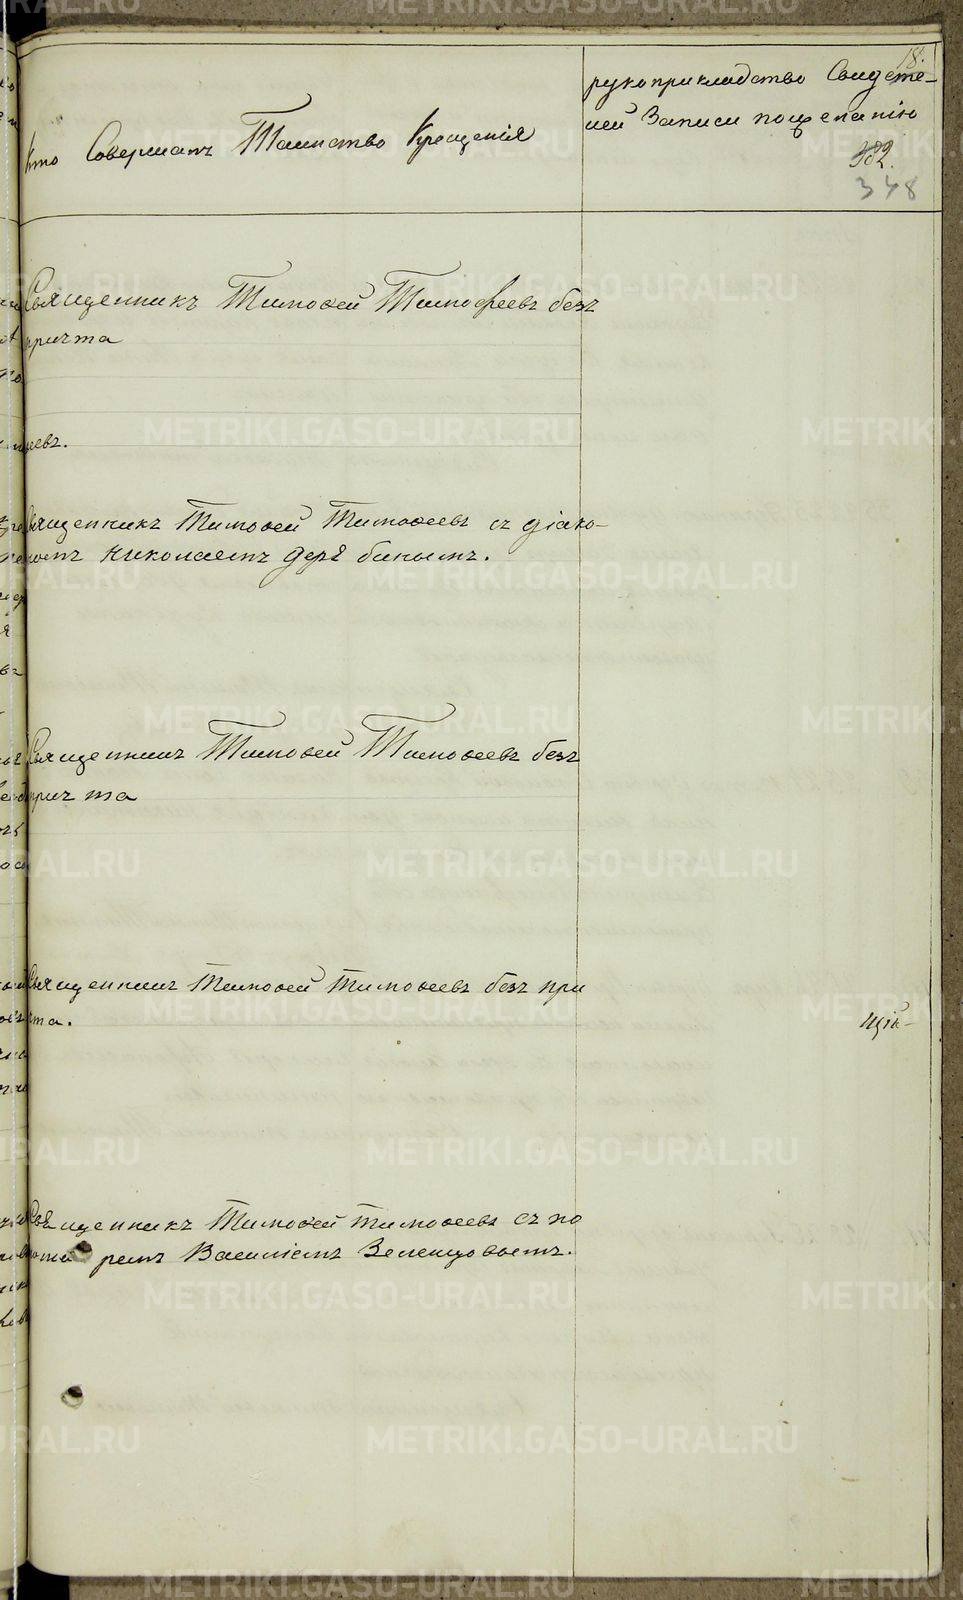 Кто Совершалъ Таинство Крещенія
рукоприкладство Свидѣте-
лей Записи по желанію
18.
382.
348
Священникъ Тимоѳей Тимофеевъ безъ
причта
Священникъ Тимоѳей Тимоѳеевъ съ діако-
номъ Николаемъ Дерябинымъ.
Священникъ Тимоѳей Тимоѳеевъ безъ
причта
Священникъ Тимоѳей Тимоѳеевъ безъ при
чта.
Священникъ Тимоѳей Тимоѳеевъ съ по
номаремъ Василіемъ Зеленцовымъ.
METRIKI.GASO-URAL.RU